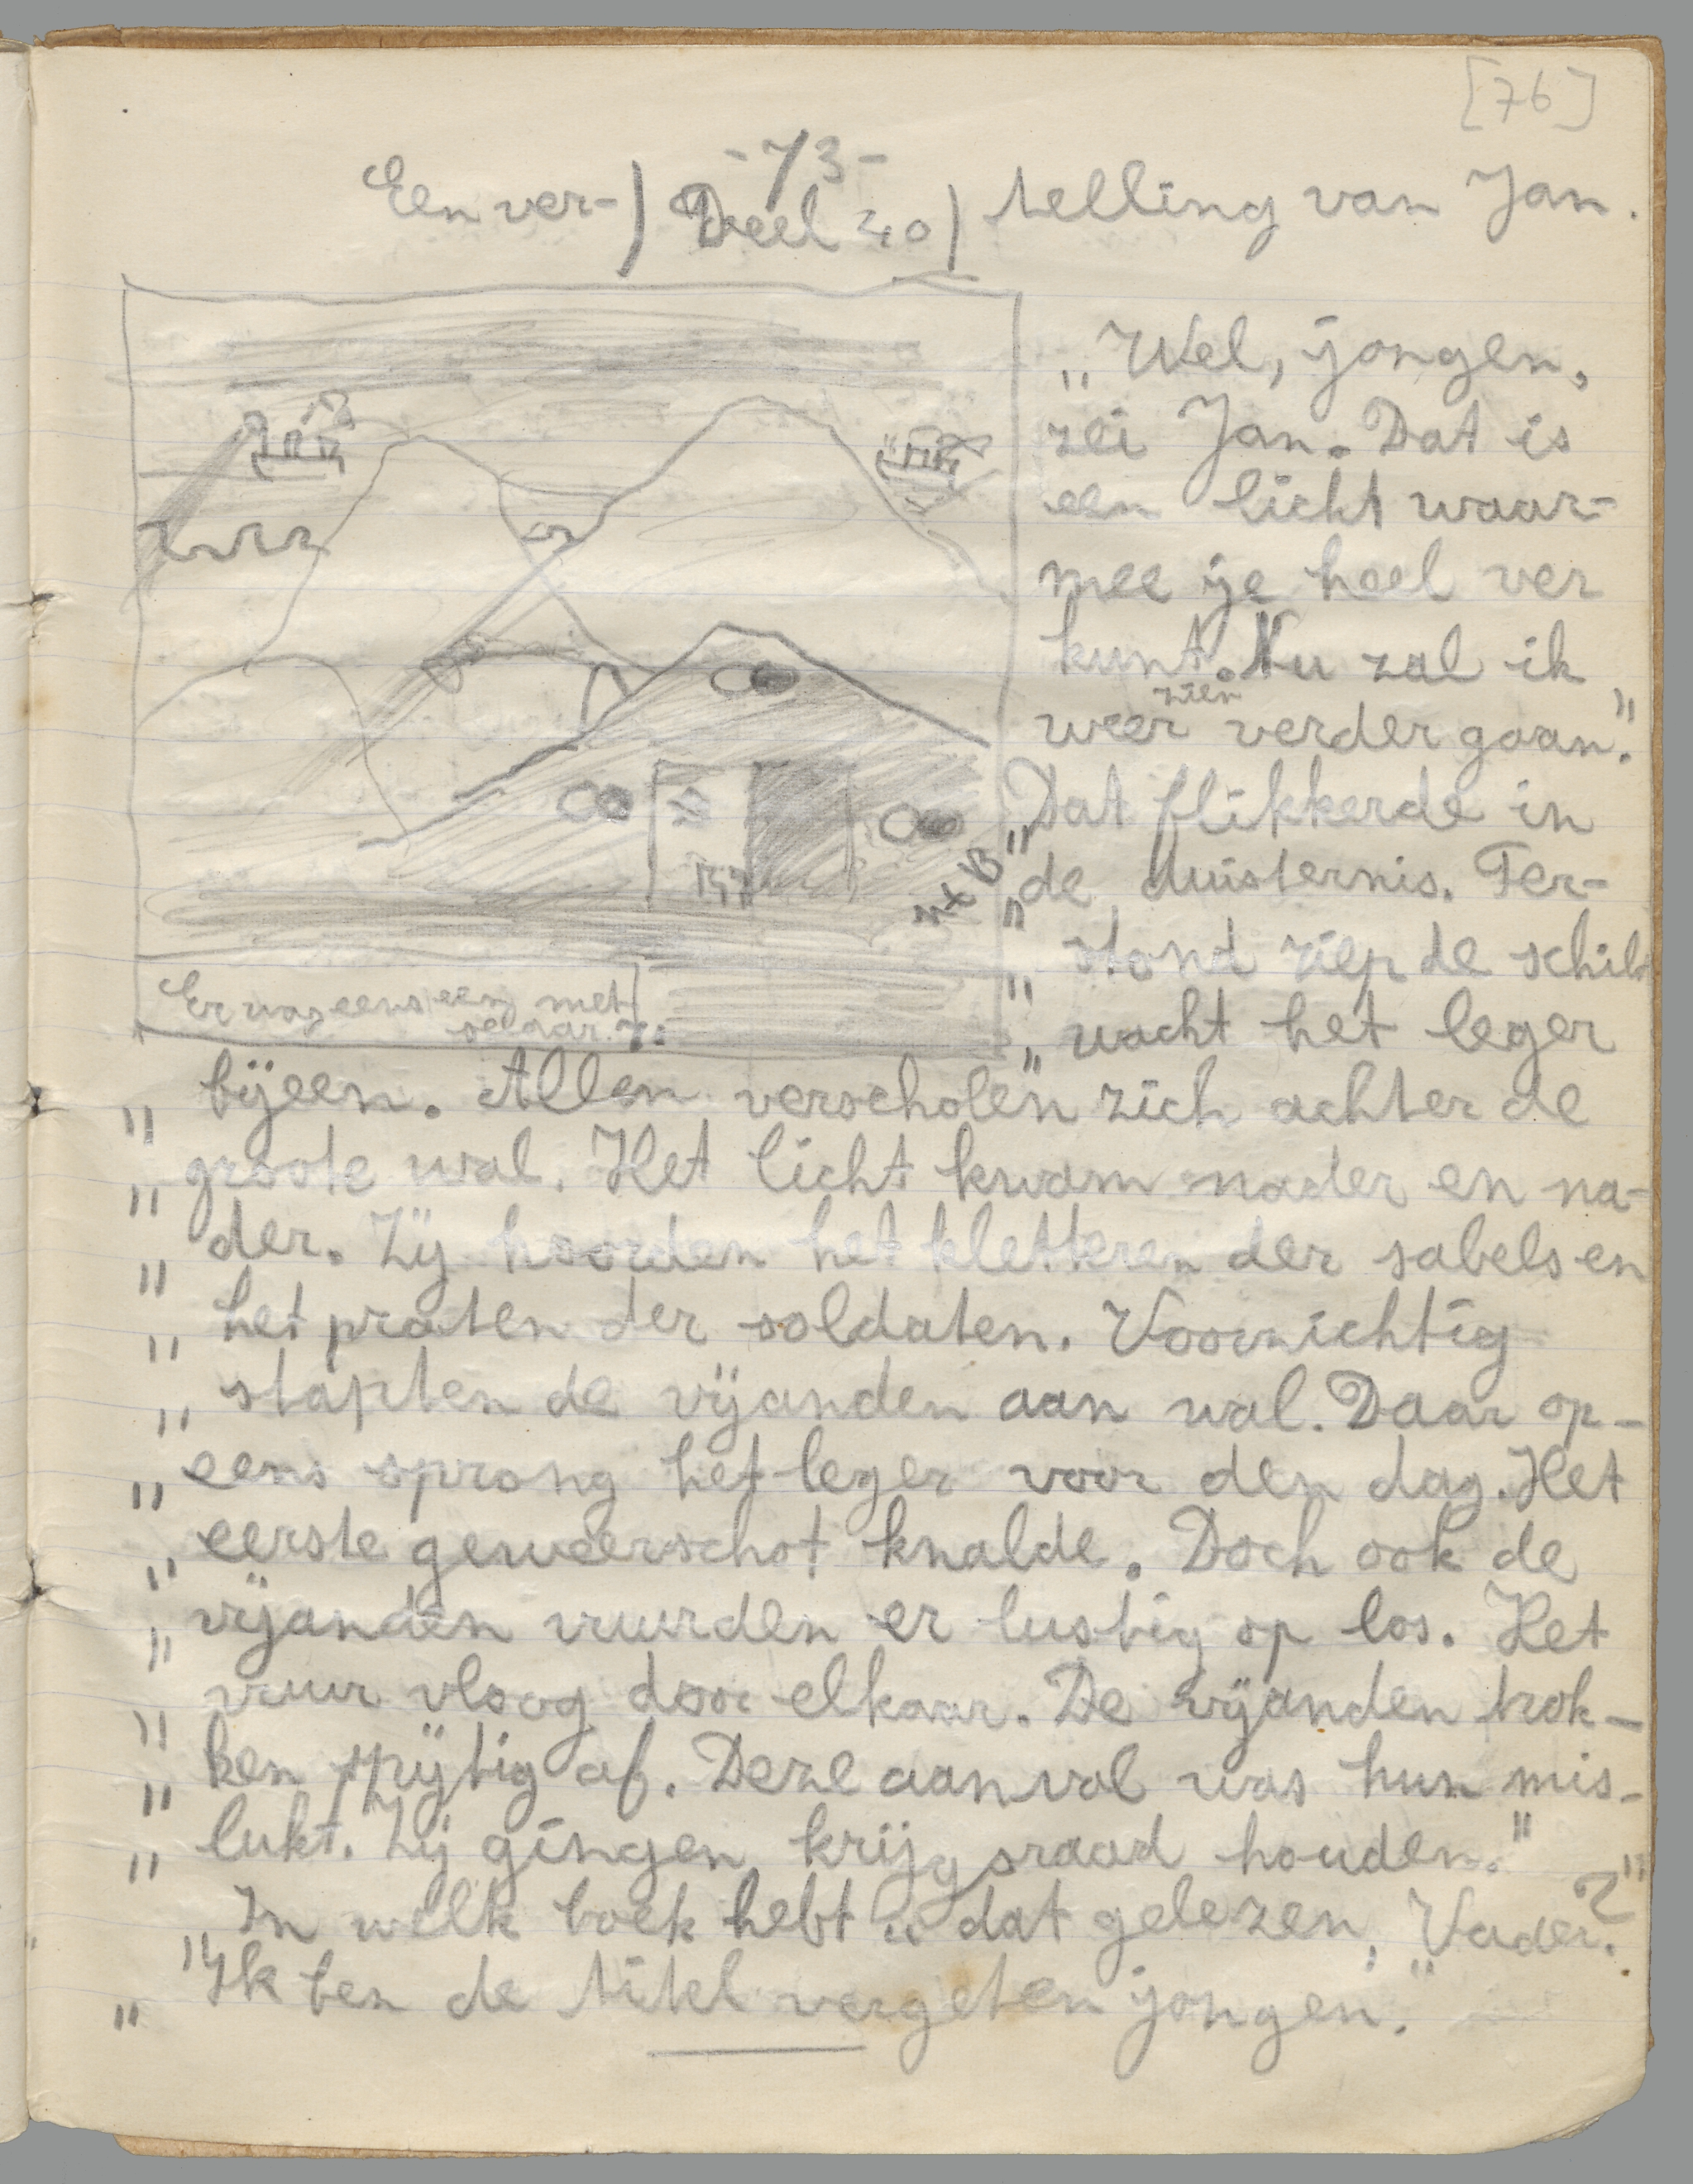 [76]
-73-
Een ver-) Deel 40) telling van Jan.
„Wel, jongen,
zei Jan. Dat is
een licht waar-
mee je heel ver
kunt. Nu zal ik
zien
weer verder gaan."
„Dat flikkerde in
„de duisternis. Ter-
„stond riep de schild
„wacht het leger
„bijeen. Allen verscholen zich achter de
„groote wal. Het licht kwam nader en na-
„der. Zij hoorden het kletteren der sabels en
„het praten der soldaten. Voorzichtig
„stapten de vijanden aan wal. Daar op-
„eens sprong het leger voor den dag. Het
„eerste geweerschot knalde. Doch ook de
„vijanden vuurden er lustig op los. Het
„vuur vloog door elkaar. De vijanden trok-
„ken spijtig af. Deze aanval was hun mis-
„lukt. Zij gingen krijgsraad houden."
„In welk boek hebt u dat gelezen, Vader?"
„Ik ben de titel vergeten jongen."
Er was eens een met
selaar.